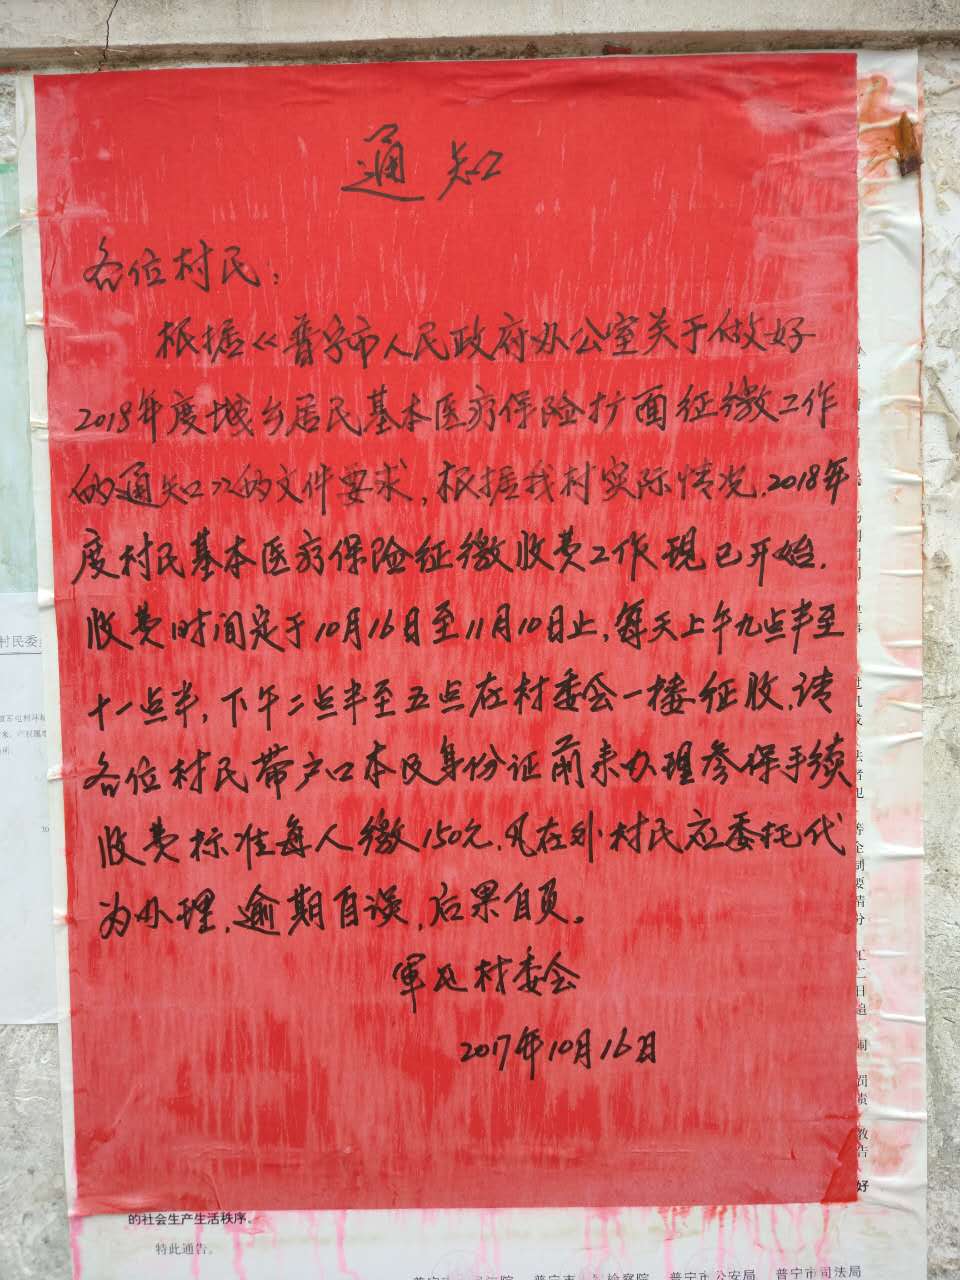 通知
各位村民:
根据《普宁市人民政府办公室关于做好
2018年度城乡居民基本医疗保险扩面征缴工作
的通知》的文件要求,根据我村实际情况.2018年
度村民基本医疗保险征缴收费工作现已开始.
收费时间定于10月16日至11月10日止,每天上午九点半至
十一点半,下午二点半至五点在村委会一楼征收.请
各位村民带户口本及身份证前来办理参保手续
收费标准每人缴150元.凡在外村民应委托代
为办理.逾期自误,后果自负。
军屯村委会
2017年10月16日
村民委
的社会生产生活秩序。
特此通告。
检察院 普宁市公安局 普宁市司法局